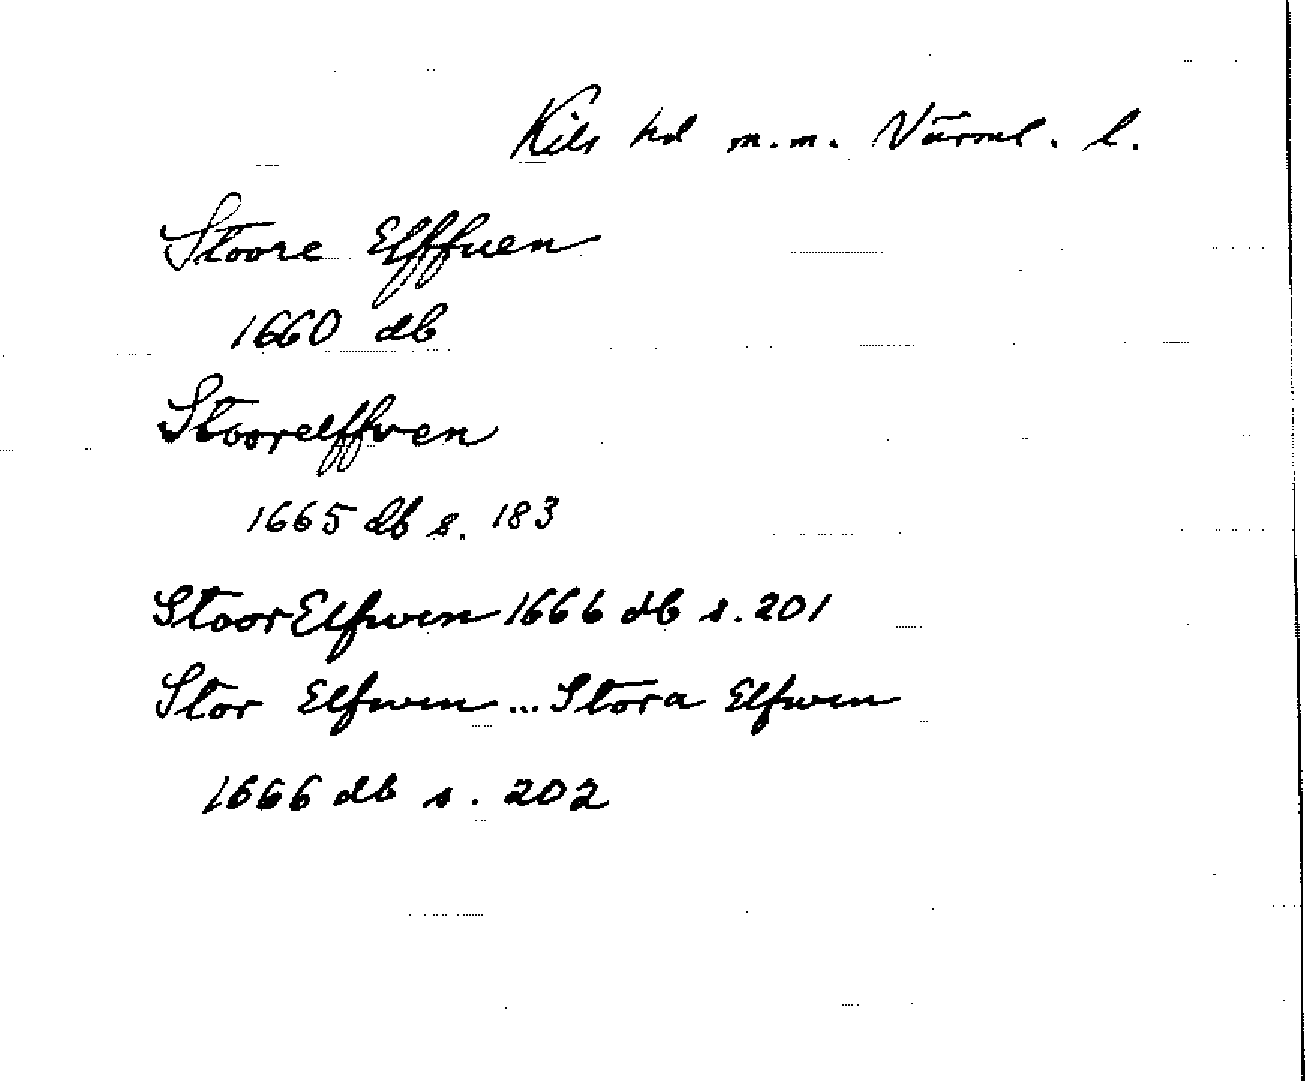 Kils hd m.m. Värml. l.
Stoore Elffuen
1660 db
Stoorelffven
1665 db s. 183
StoorElfwen 1666 db s. 201
Stor Elfwen ... Stora Elfwen
1666 db s. 202